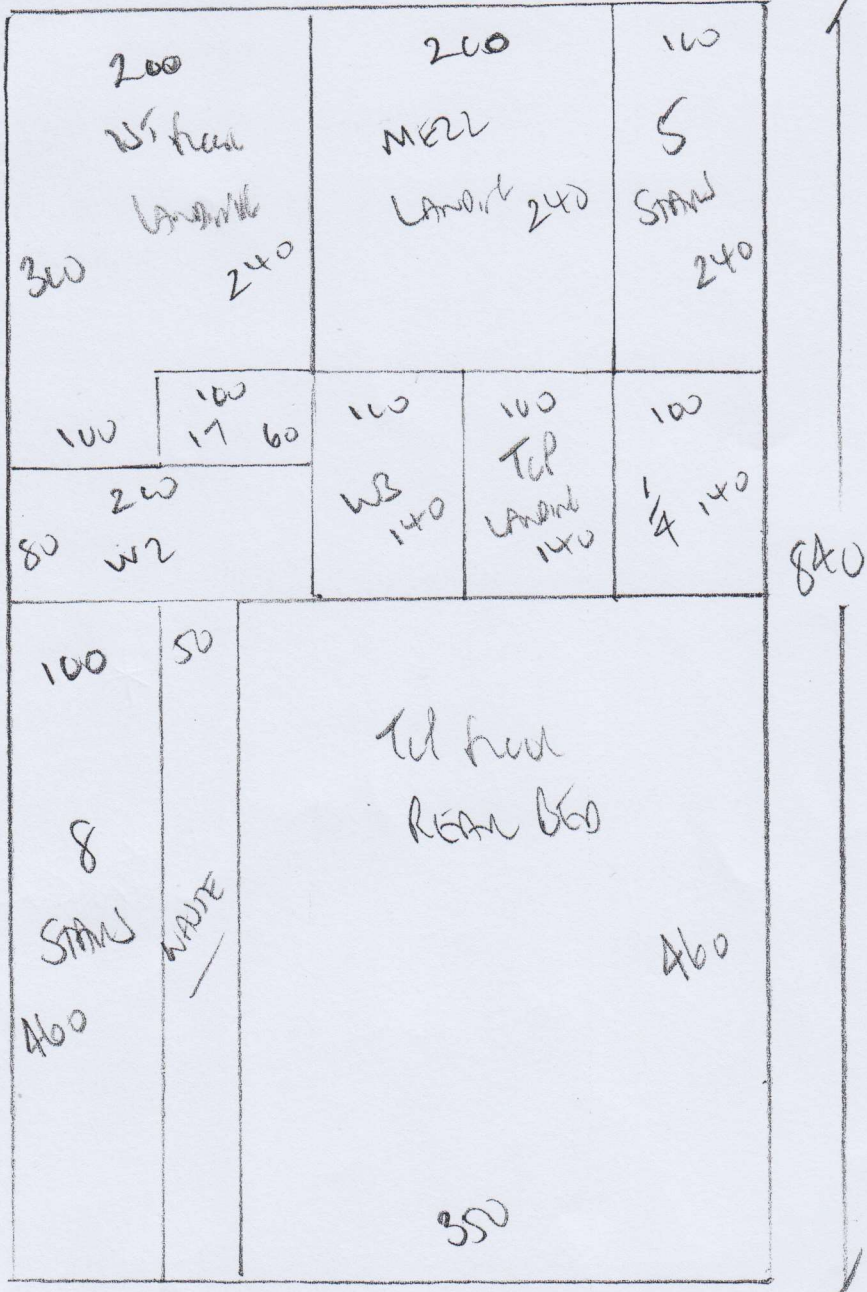 200
LANDING
300
240
100
200
MEZZ
LANDING 240
100
5
STAIRS
240
100
17 60
200
80 W2
100
W3
140
100
TOP
LANDING
140
100
1/4 140
840
100
8
STAIRS
460
50
WASTE
REAR BED
460
350